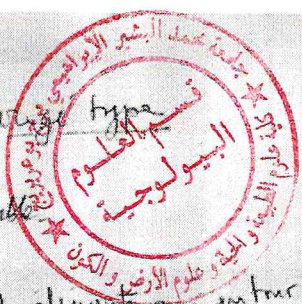 جامعة محمد البشير الإبراهيمي برج بوعريريج
كلية علوم الطبيعة والحياة وعلوم الأرض والكون
قسم العلوم
البيولوجية
type